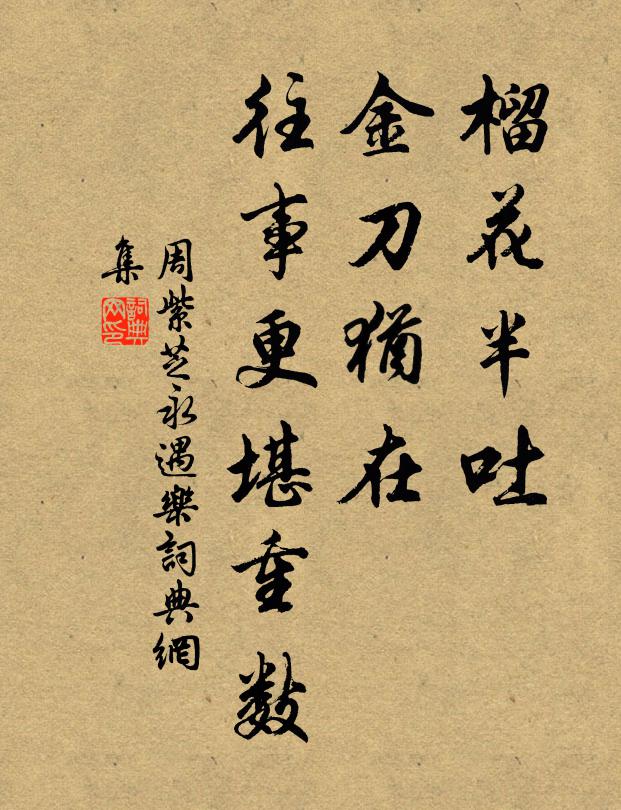 榴花半吐
金刀猶在
往事更堪重数
周紫芝永遇樂詞典網
集
詞典网印